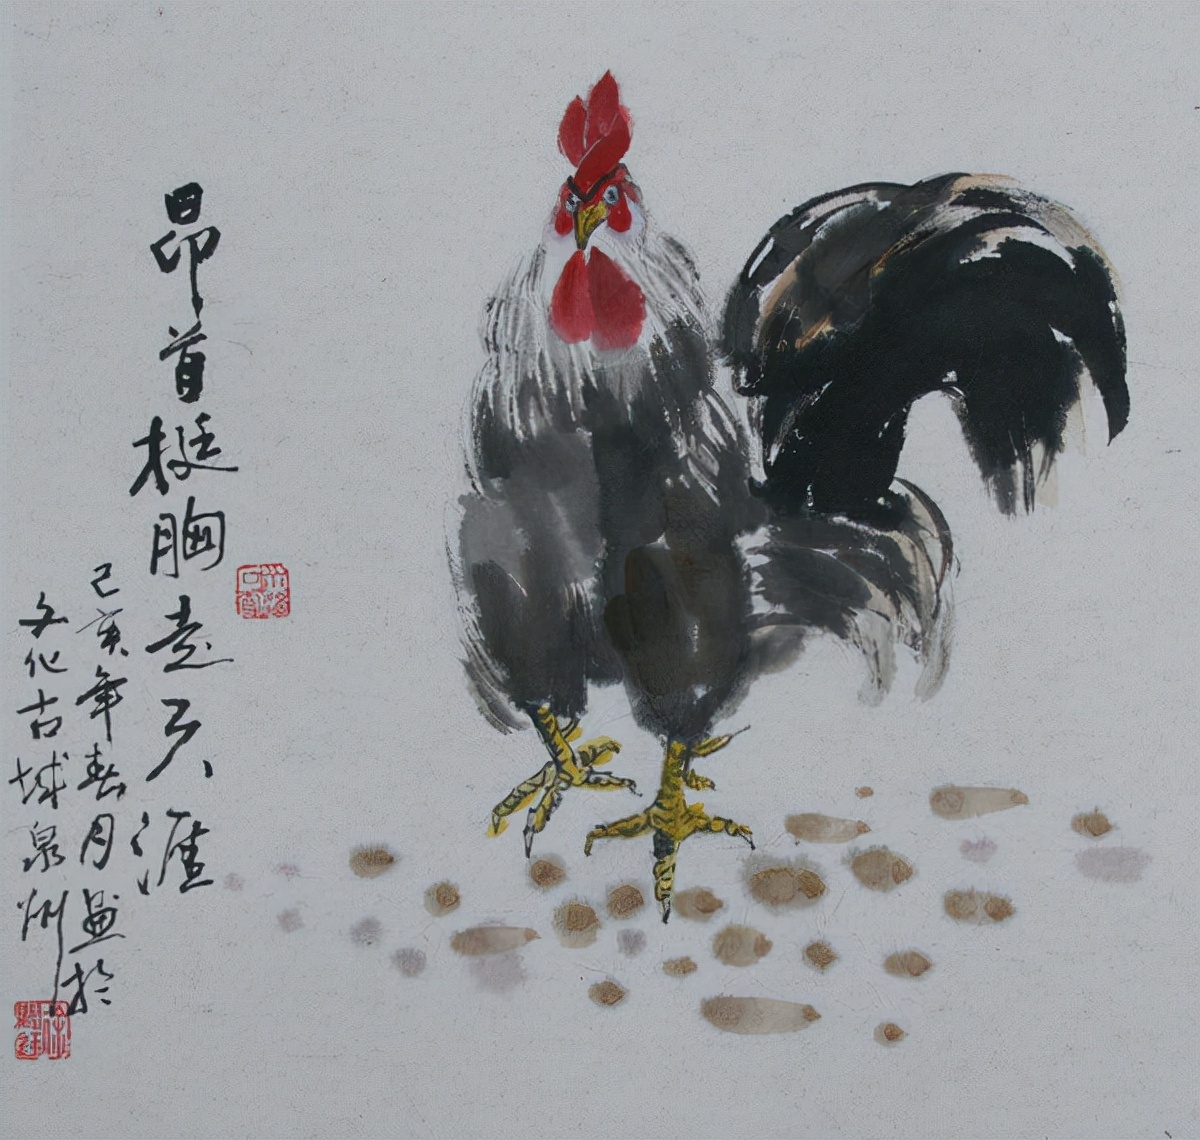 昂首挺胸走天涯
己亥年春月画於
文化古城泉州